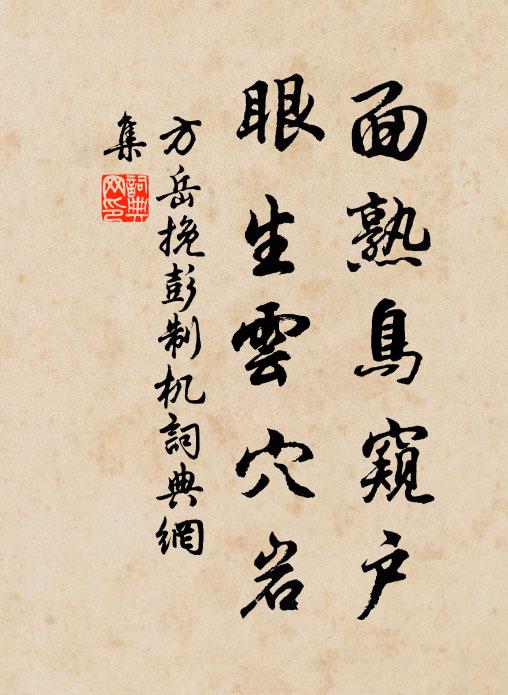 面熟鳥窺戶
眼生雲穴岩
方岳挽彭制机詞典網
集
詞典
网印